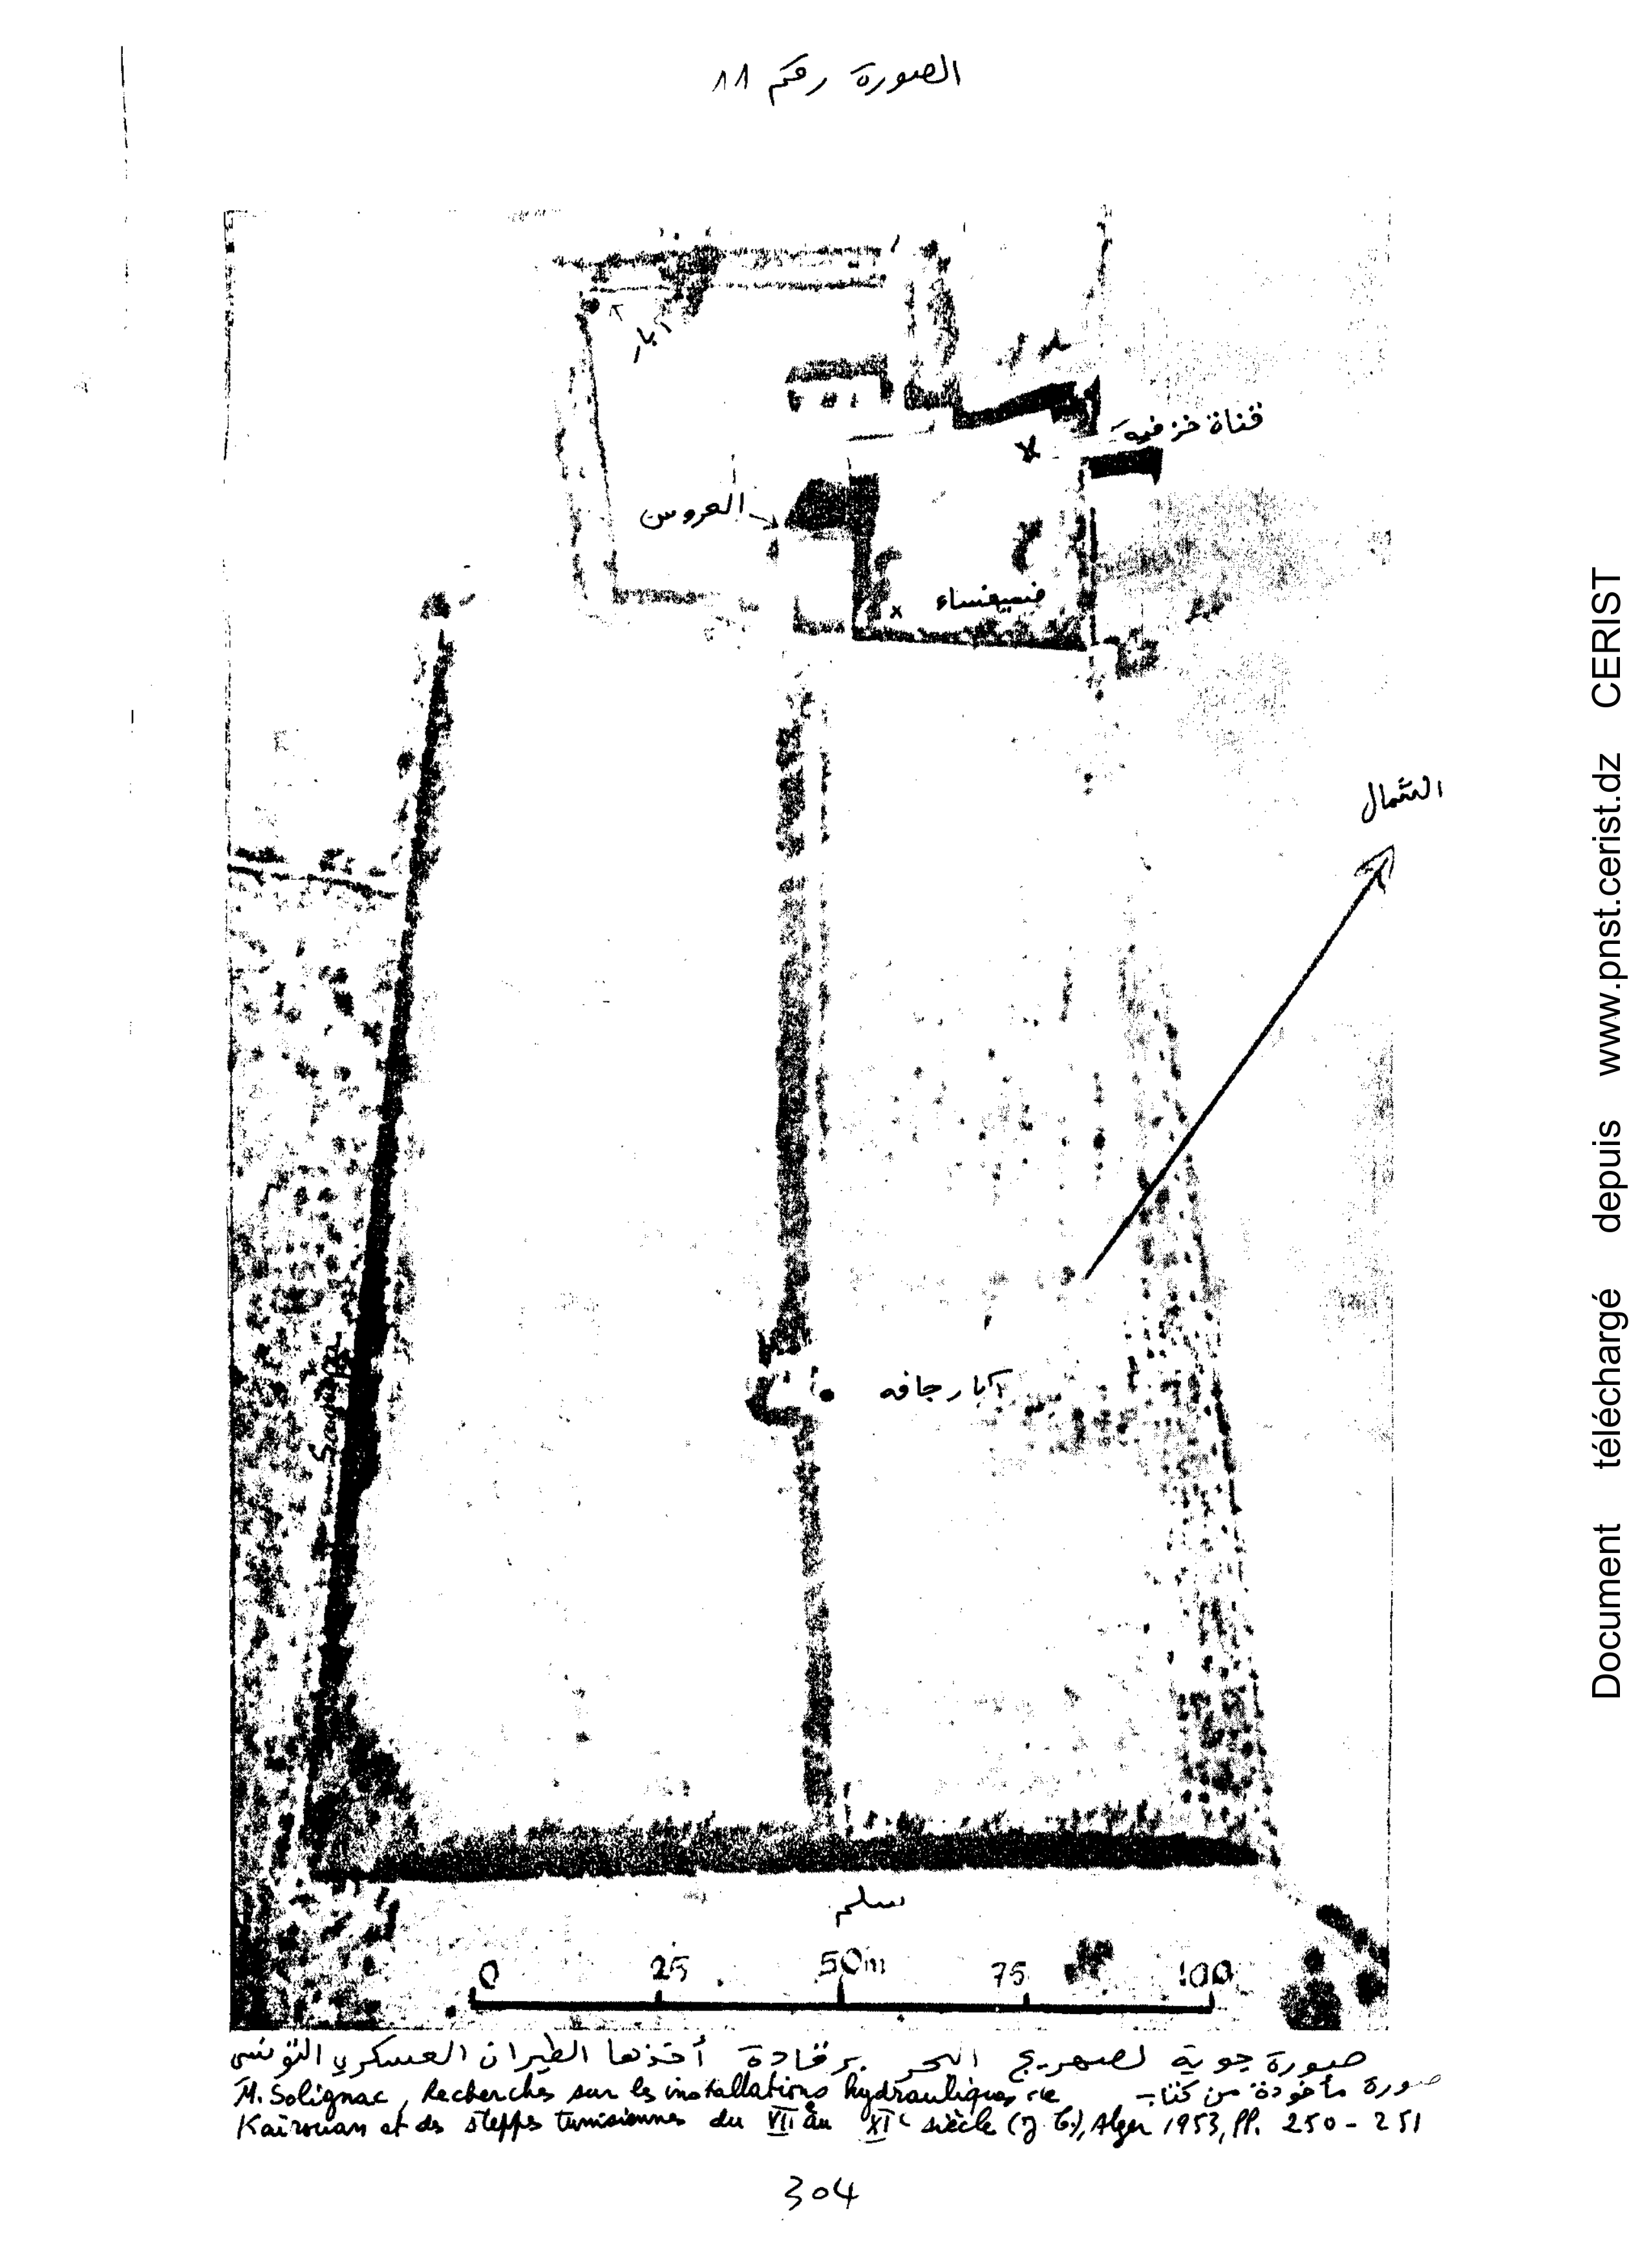 الصورة رقم 11
آبار
قناة خزفية
العروس
فسيفساء
الشمال
آبار جافه
سلم
0 25 50m 75 100
صورة جوية لصهريج البحر برقادة أخذها الطيران العسكري التونسي
صورة مأخوذة من كتاب
M. Solignac, Recherches sur les installations hydrauliques de
Kairouan et des steppes tunisiennes du VII au XIe siècle (), Alger 1953, pp. 250 - 251
304
Document téléchargé depuis www.pnst.cerist.dz CERIST